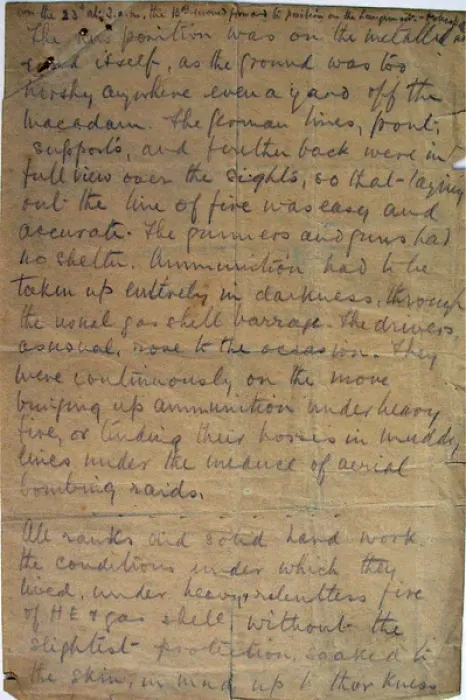 on the 23rd at 3 a.m., the 13th moved forward to position on the
The position was on the metalled
road itself, as the ground was too
marshy anywhere even a yard off the
macadam. The German lines, front,
supports, and further back were in
full view over the sights, so that laying
out the line of fire was easy and
accurate. The gunners and guns had
no shelter. Ammunition had to be
taken up entirely in darkness, through
the usual gas shell barrage. The drivers,
as usual, rose to the occasion. They
were continuously on the move
bringing up ammunition under heavy
fire, or tending their horses in muddy
lines under the menace of aerial
bombing raids.
All ranks did solid hard work
the conditions under which they
lived, under heavy & relentless fire
of HE & gas shell, without the
slightest protection, soaked to
the skin, in mud up to their knees